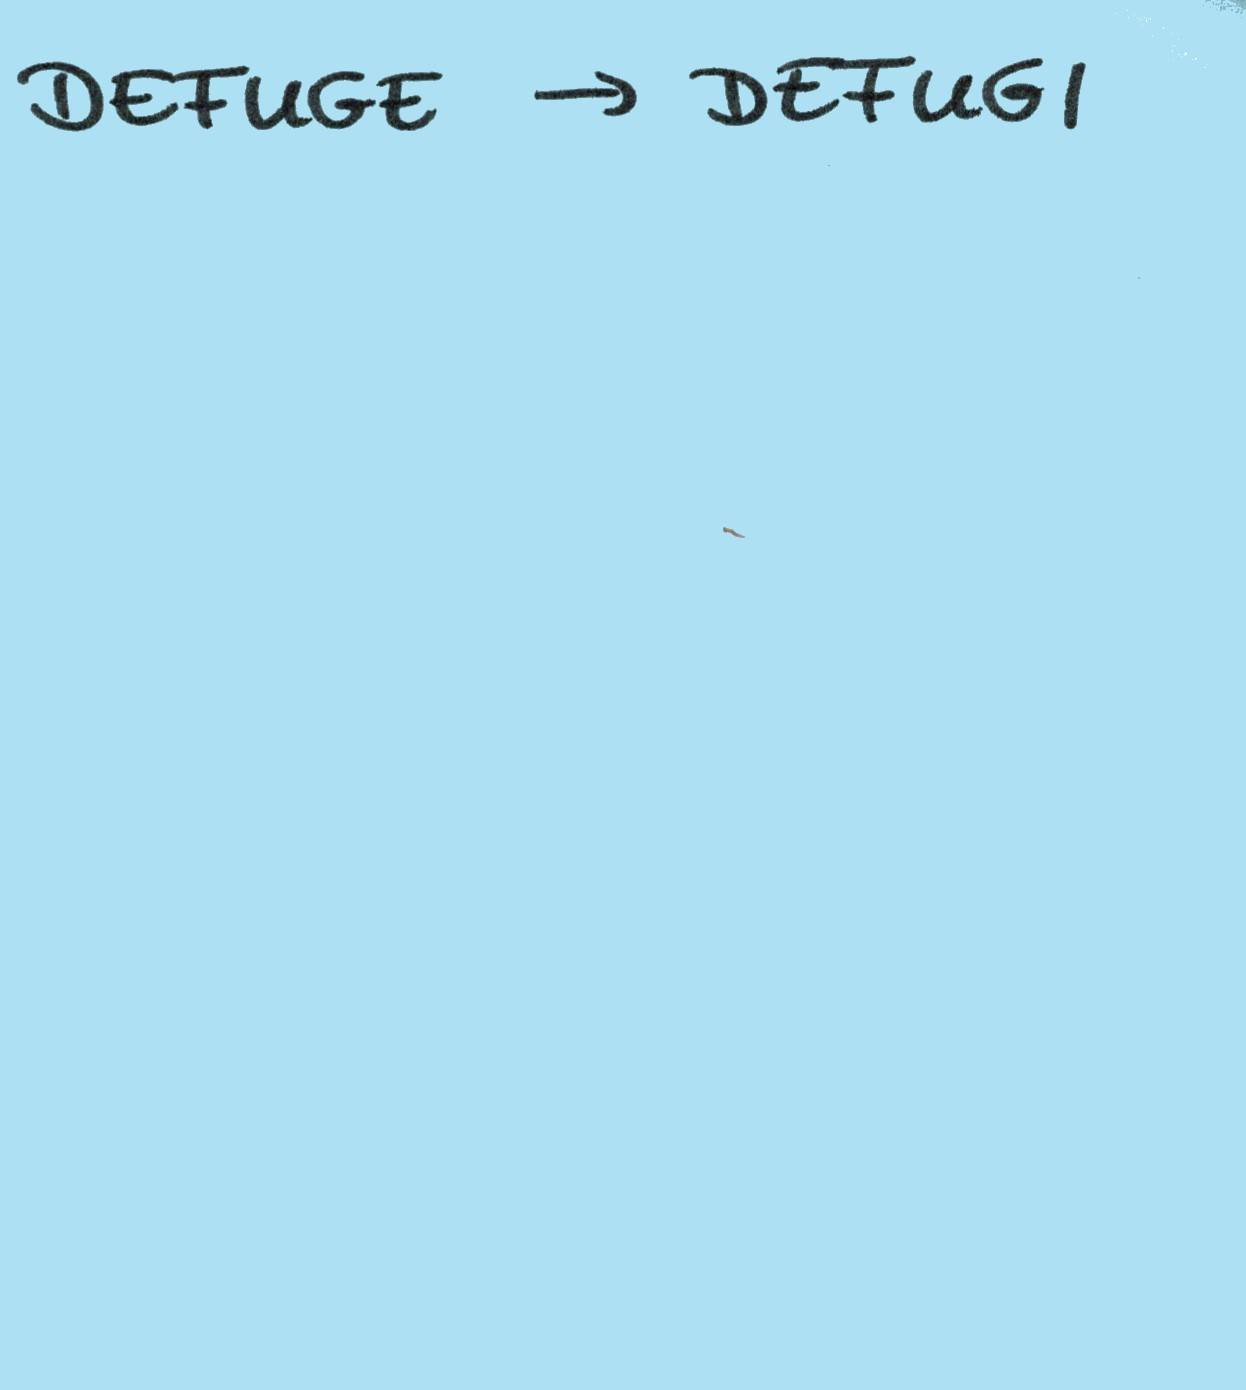 DEFUGE → DEFUGI